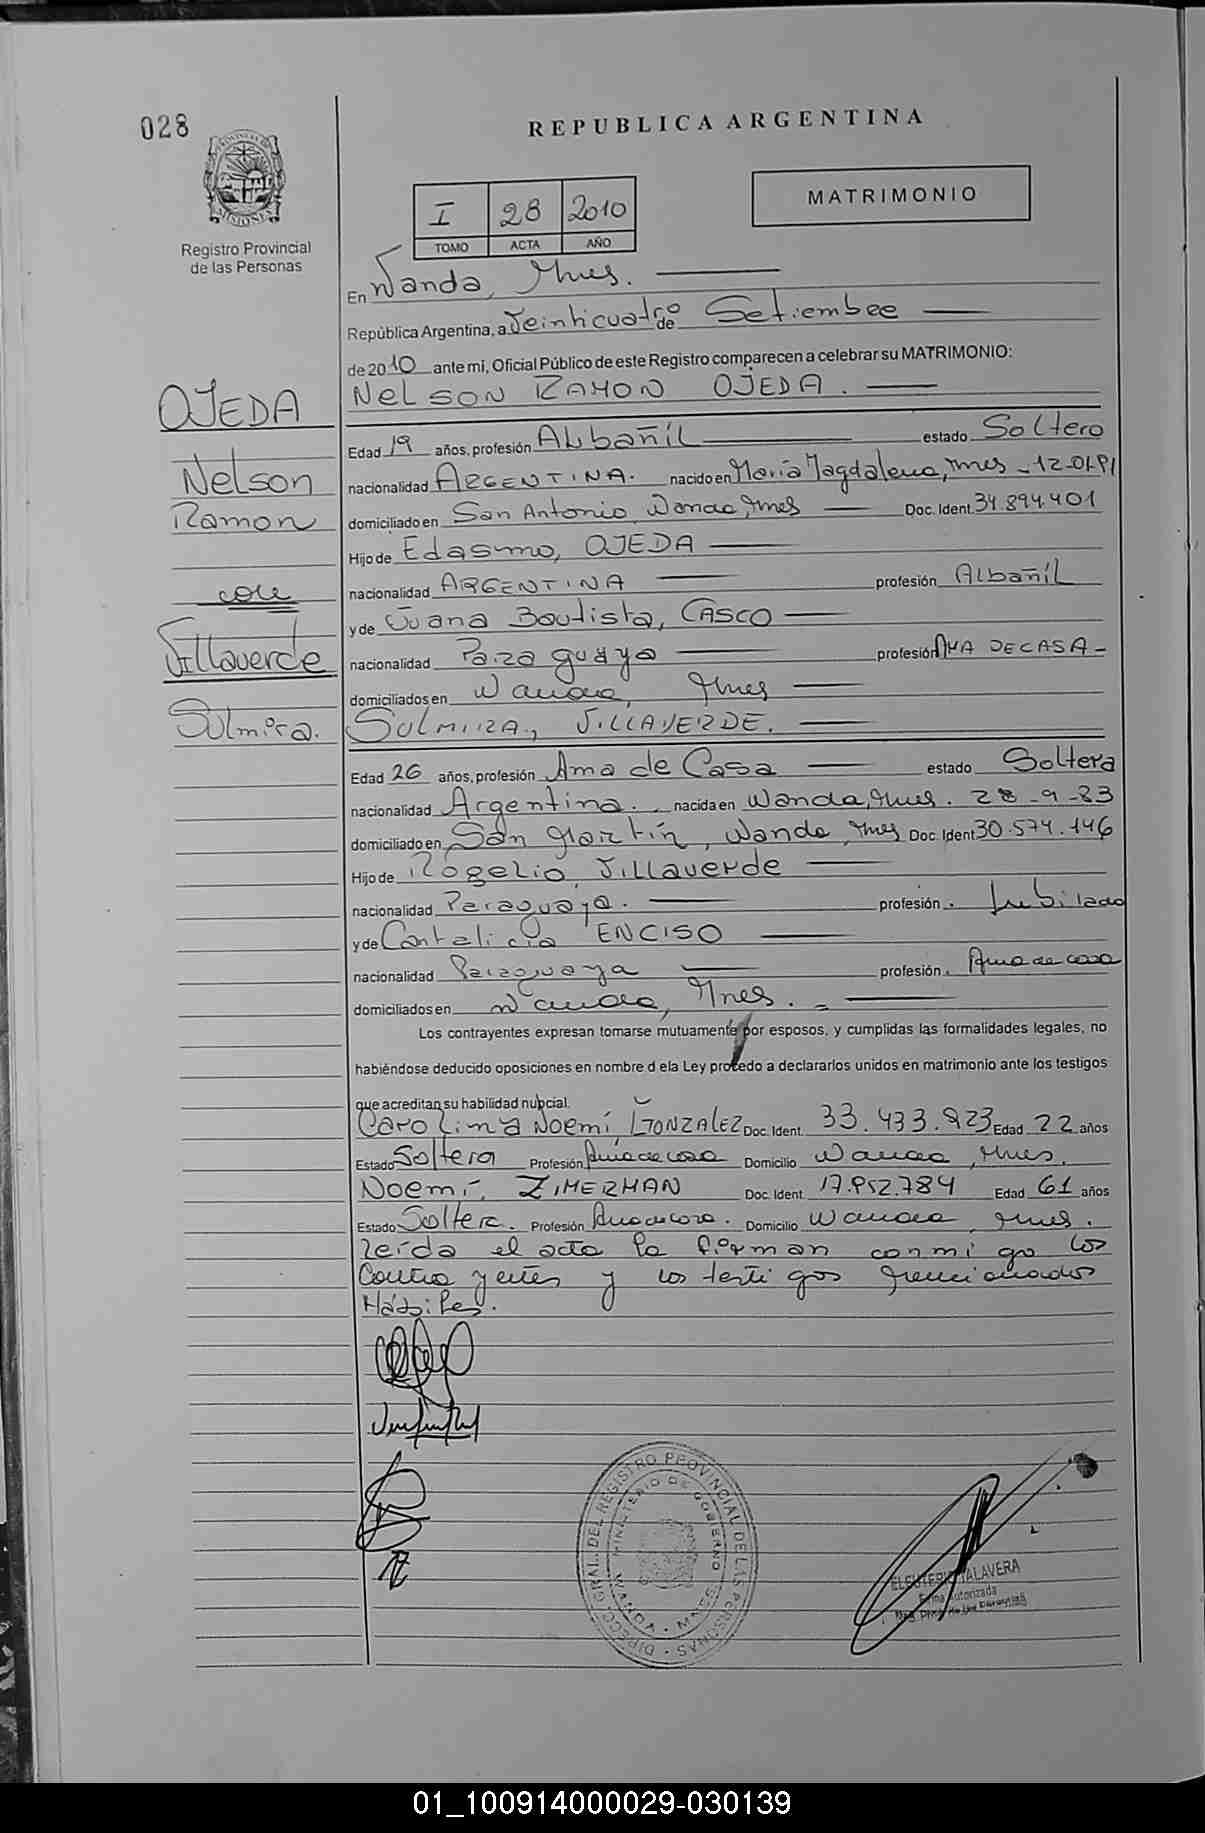 028
REPUBLICA ARGENTINA
PROVINCIA DE
MISIONES
Registro Provincial
de las Personas
MATRIMONIO
I 28 2010
TOMO ACTA AÑO
En Wanda, Mnes.
República Argentina, a Veinticuatro de Setiembre
de 2010 ante mi, Oficial Público de este Registro comparecen a celebrar su MATRIMONIO:
OJEDA
Nelson
Ramon
con
Villaverde
Sulmira.
NELSON RAMON OJEDA.
Edad 19 años, profesión Albañil estado Soltero
nacionalidad ARGENTINA. nacido en María Magdalena, Mnes - 12-01-91
domiciliado en San Antonio, Wanda, Mnes Doc. Ident. 34.894.401
Hijo de Edasmo, OJEDA
nacionalidad ARGENTINA profesión Albañil
y de Juana Bautista, CASCO
nacionalidad Paraguaya profesión AMA DE CASA-
domiciliados en Wanda, Mnes
SULMIRA, VILLAVERDE.
Edad 26 años, profesión Ama de Casa estado Soltera
nacionalidad Argentina. nacida en Wanda, Mnes. 28-9-83
domiciliado en San Martín, Wanda, Mnes Doc. Ident 30.574.146
Hijo de Rogelio, Villaverde
nacionalidad Paraguaya. profesión. Jubilado
y de Cantalicia ENCISO
nacionalidad Paraguaya profesión. Ama de casa
domiciliados en Wanda, Mnes.
Los contrayentes expresan tomarse mutuamente por esposos, y cumplidas las formalidades legales, no
habiéndose deducido oposiciones en nombre d ela Ley procedo a declararlos unidos en matrimonio ante los testigos
que acreditan su habilidad nupcial.
Carolina Noemí GONZALEZ Doc. Ident. 33.433.923 Edad 22 años
Estado Soltera Profesión Ama de casa Domicilio Wanda, Mnes.
Noemí, ZIMERMAN Doc. Ident. 17.952.784 Edad 61 años
Estado Soltera. Profesión Ama de casa. Domicilio Wanda, Mnes.
Leída el acta la firman conmigo los
Contrayentes y los testigos mencionados
Hábiles.
DIRECC. GRAL. DEL REGISTRO PROVINCIAL DE LAS PERSONAS
MINISTERIO DE GOBIERNO
WANDA - MNES
ELEUTERIO TALAVERA
Firma Autorizada
01_100914000029-030139